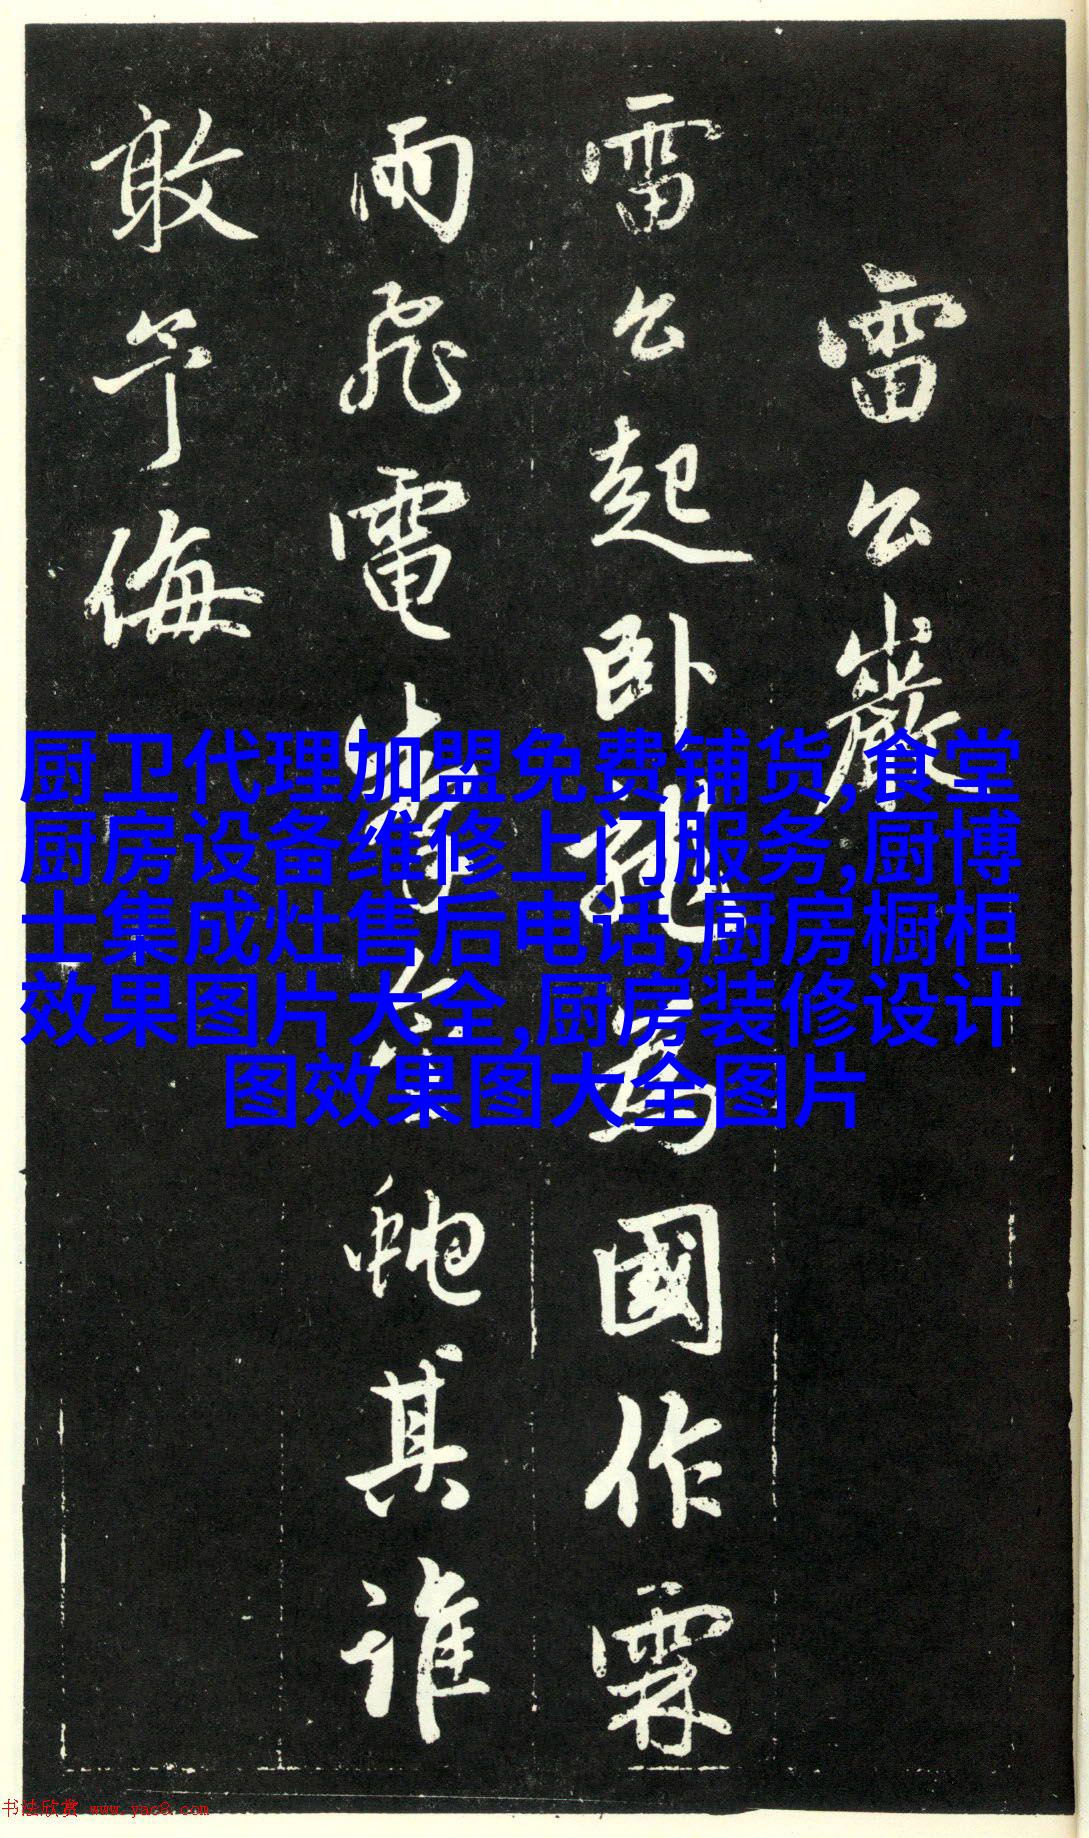 雷公巖
雷公起卧龍為國作霖
雨飛電金虵其誰
敢予侮
厨卫代理加盟免费铺货,食堂
厨房设备维修上门服务,厨博
士集成灶售后电话,厨房橱柜
效果图片大全,厨房装修设计
图效果图大全图片
书法欣赏 www.yac8.com